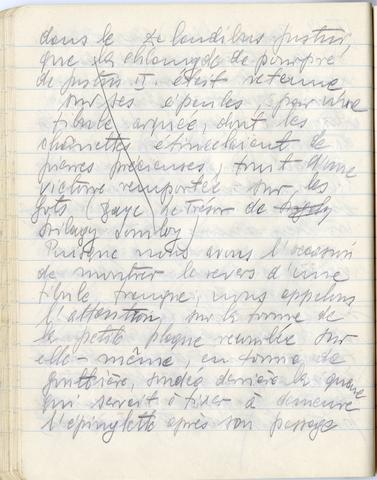 dans le de laudibus Justini,
que la chlamyde de pourpre
de Justin II. était retenue
sur ses épaules, par une
fibule arquée, dont les
chainettes étincelaient de
pierres précieuses, fruit d'une
victoire remportée sur les
Gots ( de trésor de
Szilagy Somloy)
Puisque nous avons l'occasion
de montrer le revers d'une
fibule franque, nous appelons
l'attention, sur la forme de
la petite plaque recourbée sur
elle-même, en forme de
gouttière, soudée derrière la queue
qui servait à fixer à demeure
l'épinglette après son passage